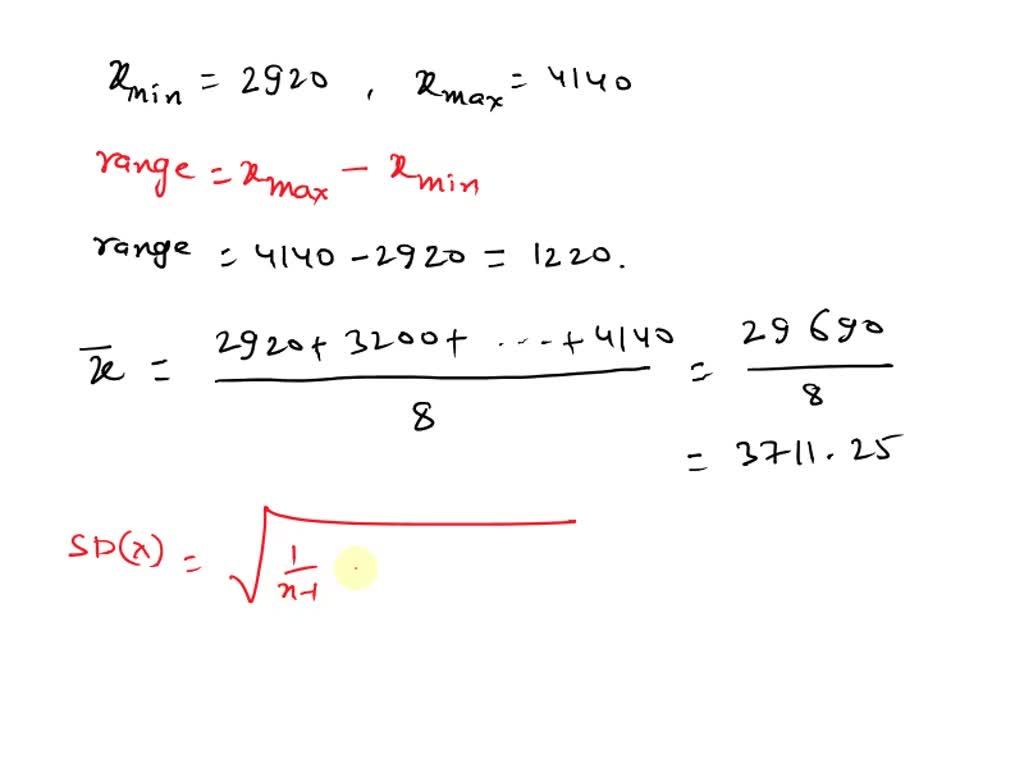 x min = 2920 , x max = 4140
range = x max - x min
range = 4140 - 2920 = 1220.
x̄ = (2920 + 3200 + ... + 4140) / 8 = 29690 / 8
= 3711.25
SD(x) = √(1/(n-1) .